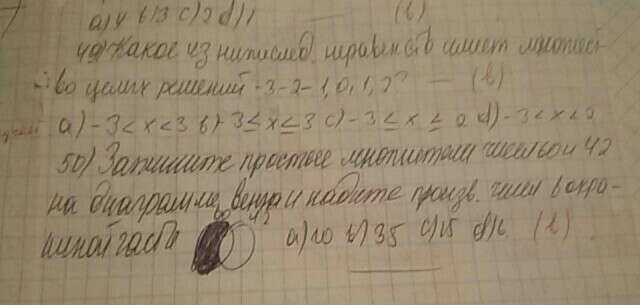 а) 4 в) 3 с) 2 d) 1 — (в)
49) Какое из нижеслед. неравенств имеет множест-
во целых решений -3-2-1,0,1,2? — (в)
а) -3<x<3 в) -3≤x≤3 с) -3≤x≤2 d) -3<x<2
50) Запишите простые множители чисел 42
на диаграмме венна и найдите произв. чисел в окра-
шиной части а) 10 в) 35 с) 15 d) 6 (в)